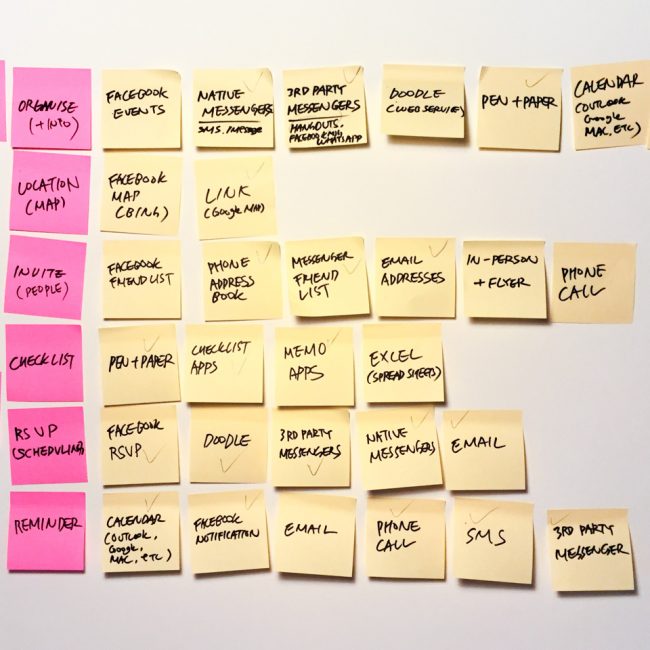 ORGANISE
(+INFO)
FACEBOOK
EVENTS
NATIVE
MESSENGERS
SMS, iMessage
3RD PARTY
MESSENGERS
HANGOUTS,
FACEBOOK MSG
WHATSAPP
DOODLE
(WEB SERVICE)
PEN + PAPER
CALENDAR
(OUTLOOK
Google
MAC, ETC)
LOCATION
(MAP)
FACEBOOK
MAP
(BING)
LINK
(Google MAP)
INVITE
(PEOPLE)
FACEBOOK
FRIENDLIST
PHONE
ADDRESS
BOOK
MESSENGER
FRIEND
LIST
EMAIL
ADDRESSES
IN-PERSON
+ FLYER
PHONE
CALL
CHECKLIST
PEN + PAPER
CHECKLIST
APPS
MEMO
APPS
EXCEL
(SPREADSHEETS)
RSVP
(SCHEDULING)
FACEBOOK
RSVP
DOODLE
3RD PARTY
MESSENGERS
NATIVE
MESSENGERS
EMAIL
REMINDER
CALENDAR
(OUTLOOK,
Google,
MAC, ETC)
FACEBOOK
NOTIFICATION
EMAIL
PHONE
CALL
SMS
3RD PARTY
MESSENGER